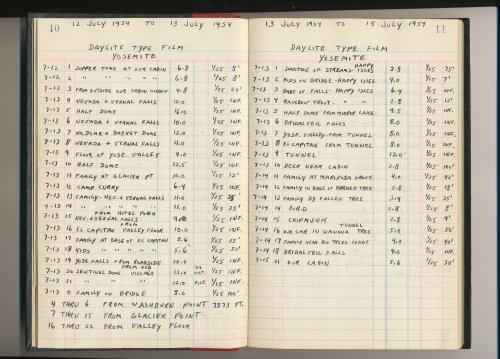 10 12 JULY 1954 TO 13 JULY 1954
DAYLITE TYPE FILM
YOSEMITE
7-12 1 SUPPER TIME AT OUR CABIN 6.8 1/25 8'
7-12 2 " " " " " 6.8 1/25 8'
7-12 3 FROM OUTSIDE OUR CABIN WINDOW 4.8 1/25 20'
7-13 4 NEVADA & VERNAL FALLS 12.0 1/25 INF.
7-13 5 HALF DOME 16.0 1/25 INF.
7-13 6 NEVADA & VERNAL FALLS 10.0 1/25 INF.
7-13 7 NO. DOME & BASKET DOME 12.0 1/25 INF.
7-13 8 NEVADA & VERNAL FALLS 11.0 1/25 INF.
7-13 9 FLOOR OF YOSE. VALLEY 9.0 1/25 INF.
7-13 10 HALF DOME 12.5 1/25 INF.
7-13 11 FAMILY AT GLACIER PT 10.0 1/25 12'
7-13 12 CAMP CURRY 6.4 1/25 INF.
7-13 13 FAMILY-NEV. & VERNAL FALLS 11.0 1/25 25'
7-13 14 " " " " 11.0 1/25 25'
FROM HOTEL PORCH
7-13 15 NEV. & VERNAL FALLS 9.0 1/25 INF.
FROM
7-13 16 EL CAPITAN VALLEY FLOOR 10.0 1/25 INF.
7-13 17 FAMILY AT BASE OF EL CAPITAN 5.6 1/25 25'
7-13 18 KIDS " " " " " 5.6 1/25 30'
7-13 19 YOSE. FALLS FROM ROADSIDE 10.0 1/25 INF.
FROM OLD
7-13 20 SENTINEL DOME VILLAGE 12.0 NO FILT. 1/25 INF.
7-13 21 " " " 12.0 FILT. 1/25 INF.
7-13 0 FAMILY ON BRIDGE 8.0 1/25 100'
4 THRU 6 FROM WASHBURN POINT 7373 FT.
7 THRU 15 FROM GLACIER POINT
16 THRU 22 FROM VALLEY FLOOR
13 JULY 1954 TO 15 JULY 1954 11
DAYLITE TYPE FILM
YOSEMITE
7-13 1 JUNCTION OF STREAMS-HAPPY ISLES 2.8 1/25 75'
7-13 2 KIDS ON BRIDGE-HAPPY ISLES 4.0 1/25 7'
7-13 3 BABE OF FALLS-HAPPY ISLES 6.4 1/25 INF.
7-13 4 RAINBOW TROUT- " " 2.8 1/25 12'
7-13 5 HALF DOME FROM MIRROR LAKE 9.5 1/25 INF.
7-13 6 BRIDALVEIL FALLS 8.0 1/25 INF.
7-13 7 YOSE. VALLEY-FROM TUNNEL 8.0 1/25 INF.
7-13 8 EL CAPITAN FROM TUNNEL 8.0 1/25 INF.
7-13 9 TUNNEL 13.0 1/25 INF.
7-13 10 DEER NEAR CABIN 2.8 1/25
7-14 11 FAMILY AT MARIPOSA GROVE 4.0 1/25
7-14 12 FAMILY IN BASE OF BURNED TREE 2.8 1/25 18'
7-14 13 FAMILY BY FALLEN TREE 3.4 1/25 35'
7-14 14 BIRD 2.8 1/25 8'
7-14 15 CHIPMUNK 2.8 1/25 9'
TUNNEL
7-14 16 OUR CAR IN WAWONA TREE 5.0 1/25 50'
7-14 17 FAMILY NEAR BIG TREES LODGE 4.0 1/25 40'
7-14 18 BRIDALVEIL FALLS 4.0 1/25 INF.
7-15 21 OUR CABIN 5.6 1/25 30'